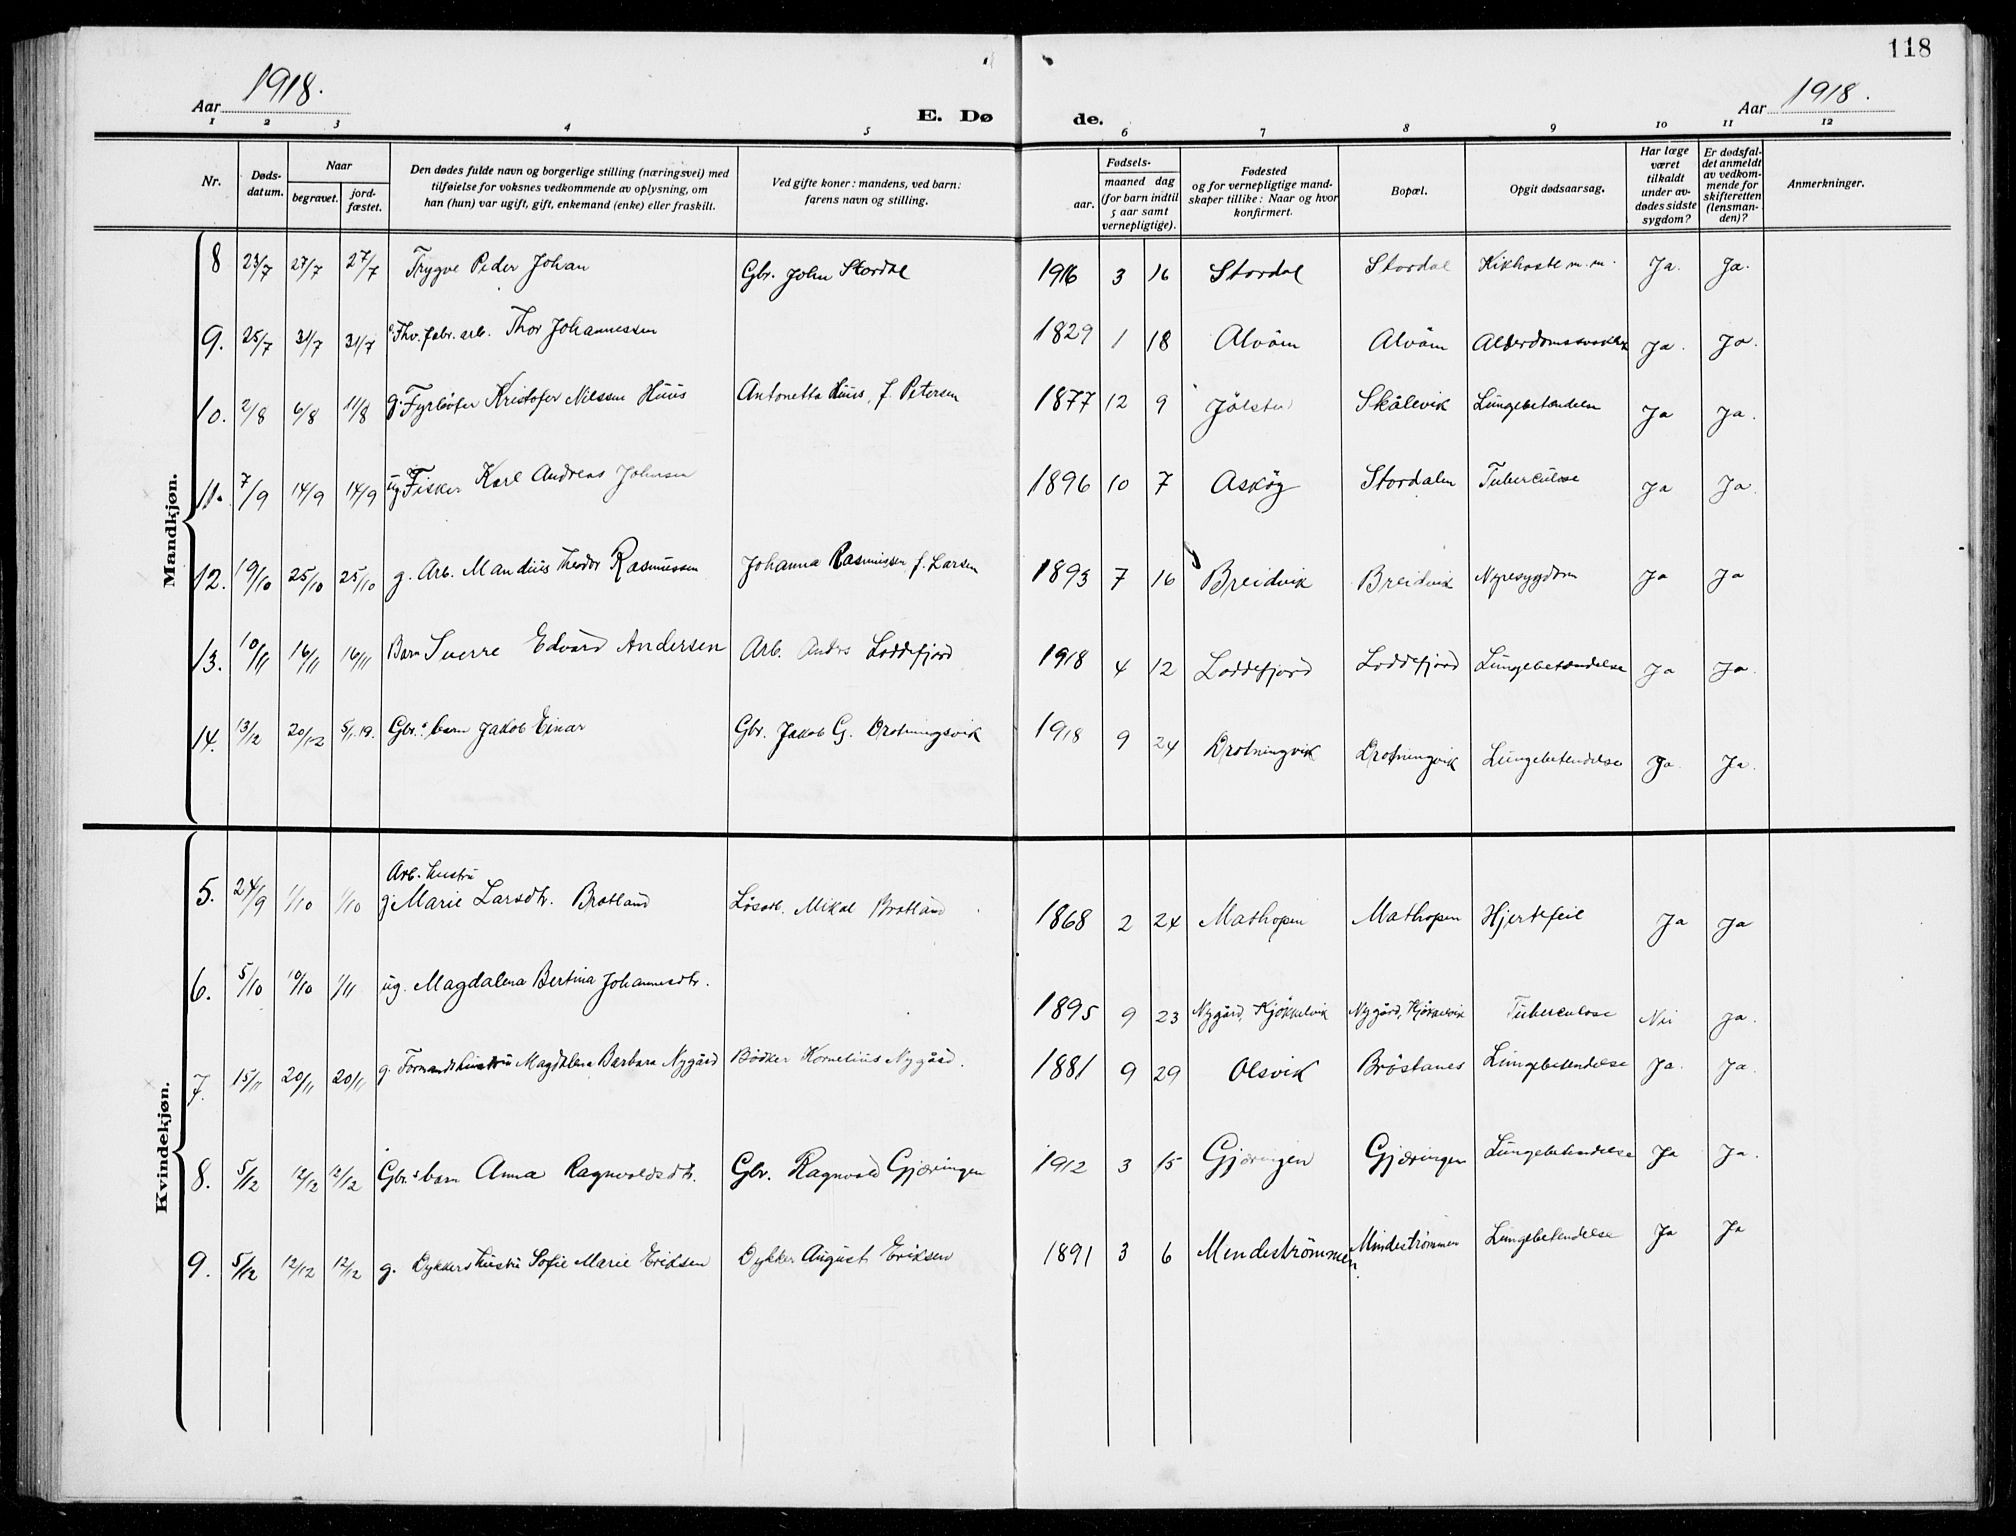 118
Aar 1918.
E. Døde.
Aar 1918.
1 2 3 4 5 6 7 8 9 10 11 12
Nr.
Døds-datum.
Naar
begravet.
jord-fæstet.
Den dødes fulde navn og borgerlige stilling (næringsvei) med
tilføielse for voksnes vedkommende av oplysning, om
han (hun) var ugift, gift, enkemand (enke) eller fraskilt.
Ved gifte koner: mandens, ved barn:
farens navn og stilling.
Fødsels-
aar.
maaned dag
(for barn indtil
5 aar samt
vernepligtige).
Fødested
og for vernepligtige mand-
skaper tillike: Naar og hvor
konfirmert.
Bopæl.
Opgit dødsaarsag.
Har læge
været
tilkaldt
under av-
dødes sidste
sygdom?
Er dødsfal-
det anmeldt
av vedkom-
mende for
skifteretten
(lensman-
den)?
Anmerkninger.
Mandkjøn.
8 23/7 27/7 27/7 Trygve Peder Johan Gbr. John Stordal 1916 3 16 Stordal Stordal Kikhoste m.m. Ja. Ja.
9. 25/7 31/7 31/7 Fhv. fabr. arb. Thor Johannessen 1829 1 18 Alvöen Alvöen Alderdomssvakhet Ja. Ja.
10. 2/8 6/8 11/8 g. Fyrböter Kristofer Nilssen Huus Antonetta Huus, f. Petersen 1877 12 9 Jölster Skålevik Lungebetendelse Ja Ja.
11. 7/9 14/9 14/9 ug. Fisker Karl Andreas Johnsen 1896 10 7 Asköy Stordalen Tuberculose Ja Ja.
12. 19/10 25/10 25/10 g. Arb. Mandius Theodor Rasmussen Johanna Rasmussen f. Larsen 1893 7 16 Breidvik Breidvik Nyresygdom Ja Ja
13. 10/11 16/11 16/11 Barn Sverre Edvard Andersen Arb. Anders Loddefjord 1918 4 12 Loddefjord Loddefjord Lungebetændelse Ja Ja.
14. 13/12 20/12 5/1.19. Gbr.s barn Jakob Einar Gbr. Jakob G. Drotningsvik 1918 9 24 Drotningvik Drotningvik Lungebetendelse Ja. Ja.
Kvindekjøn.
Arb. hustru
5. 24/9 1/10 1/10 g. Marie Larsdtr. Brotland Lösarb. Mikal Brotland 1868 2 24 Mathopen Mathopen Hjertefeil Ja Ja
6. 5/10 10/10 1/11 ug. Magdalena Bertina Johannesdtr. 1895 9 23 Nygård, Kjökkelvik Nygård, Kjökkelvik Tuberculose Nei Ja.
7. 15/11 20/11 20/11 g. Formands hustru Magdalena Barbara Nygård Bödker Kornelius Nygård. 1881 9 29 Olsvik Bröstanes Lungebetendelse Ja. Ja.
8. 5/12 12/12 12/12 Gbr.s barn Anna Ragnvaldsdtr. Gbr. Ragnvald Gjæringen 1912 3 15 Gjæringen Gjæringen Lungebetendelse Ja Ja.
9. 5/12 12/12 12/12 g. Dykkers hustru Sofie Marie Eriksen Dykker August Eriksen 1891 3 6 Mindeströmmen. Mindeströmmen Lungebetendelse Ja Ja